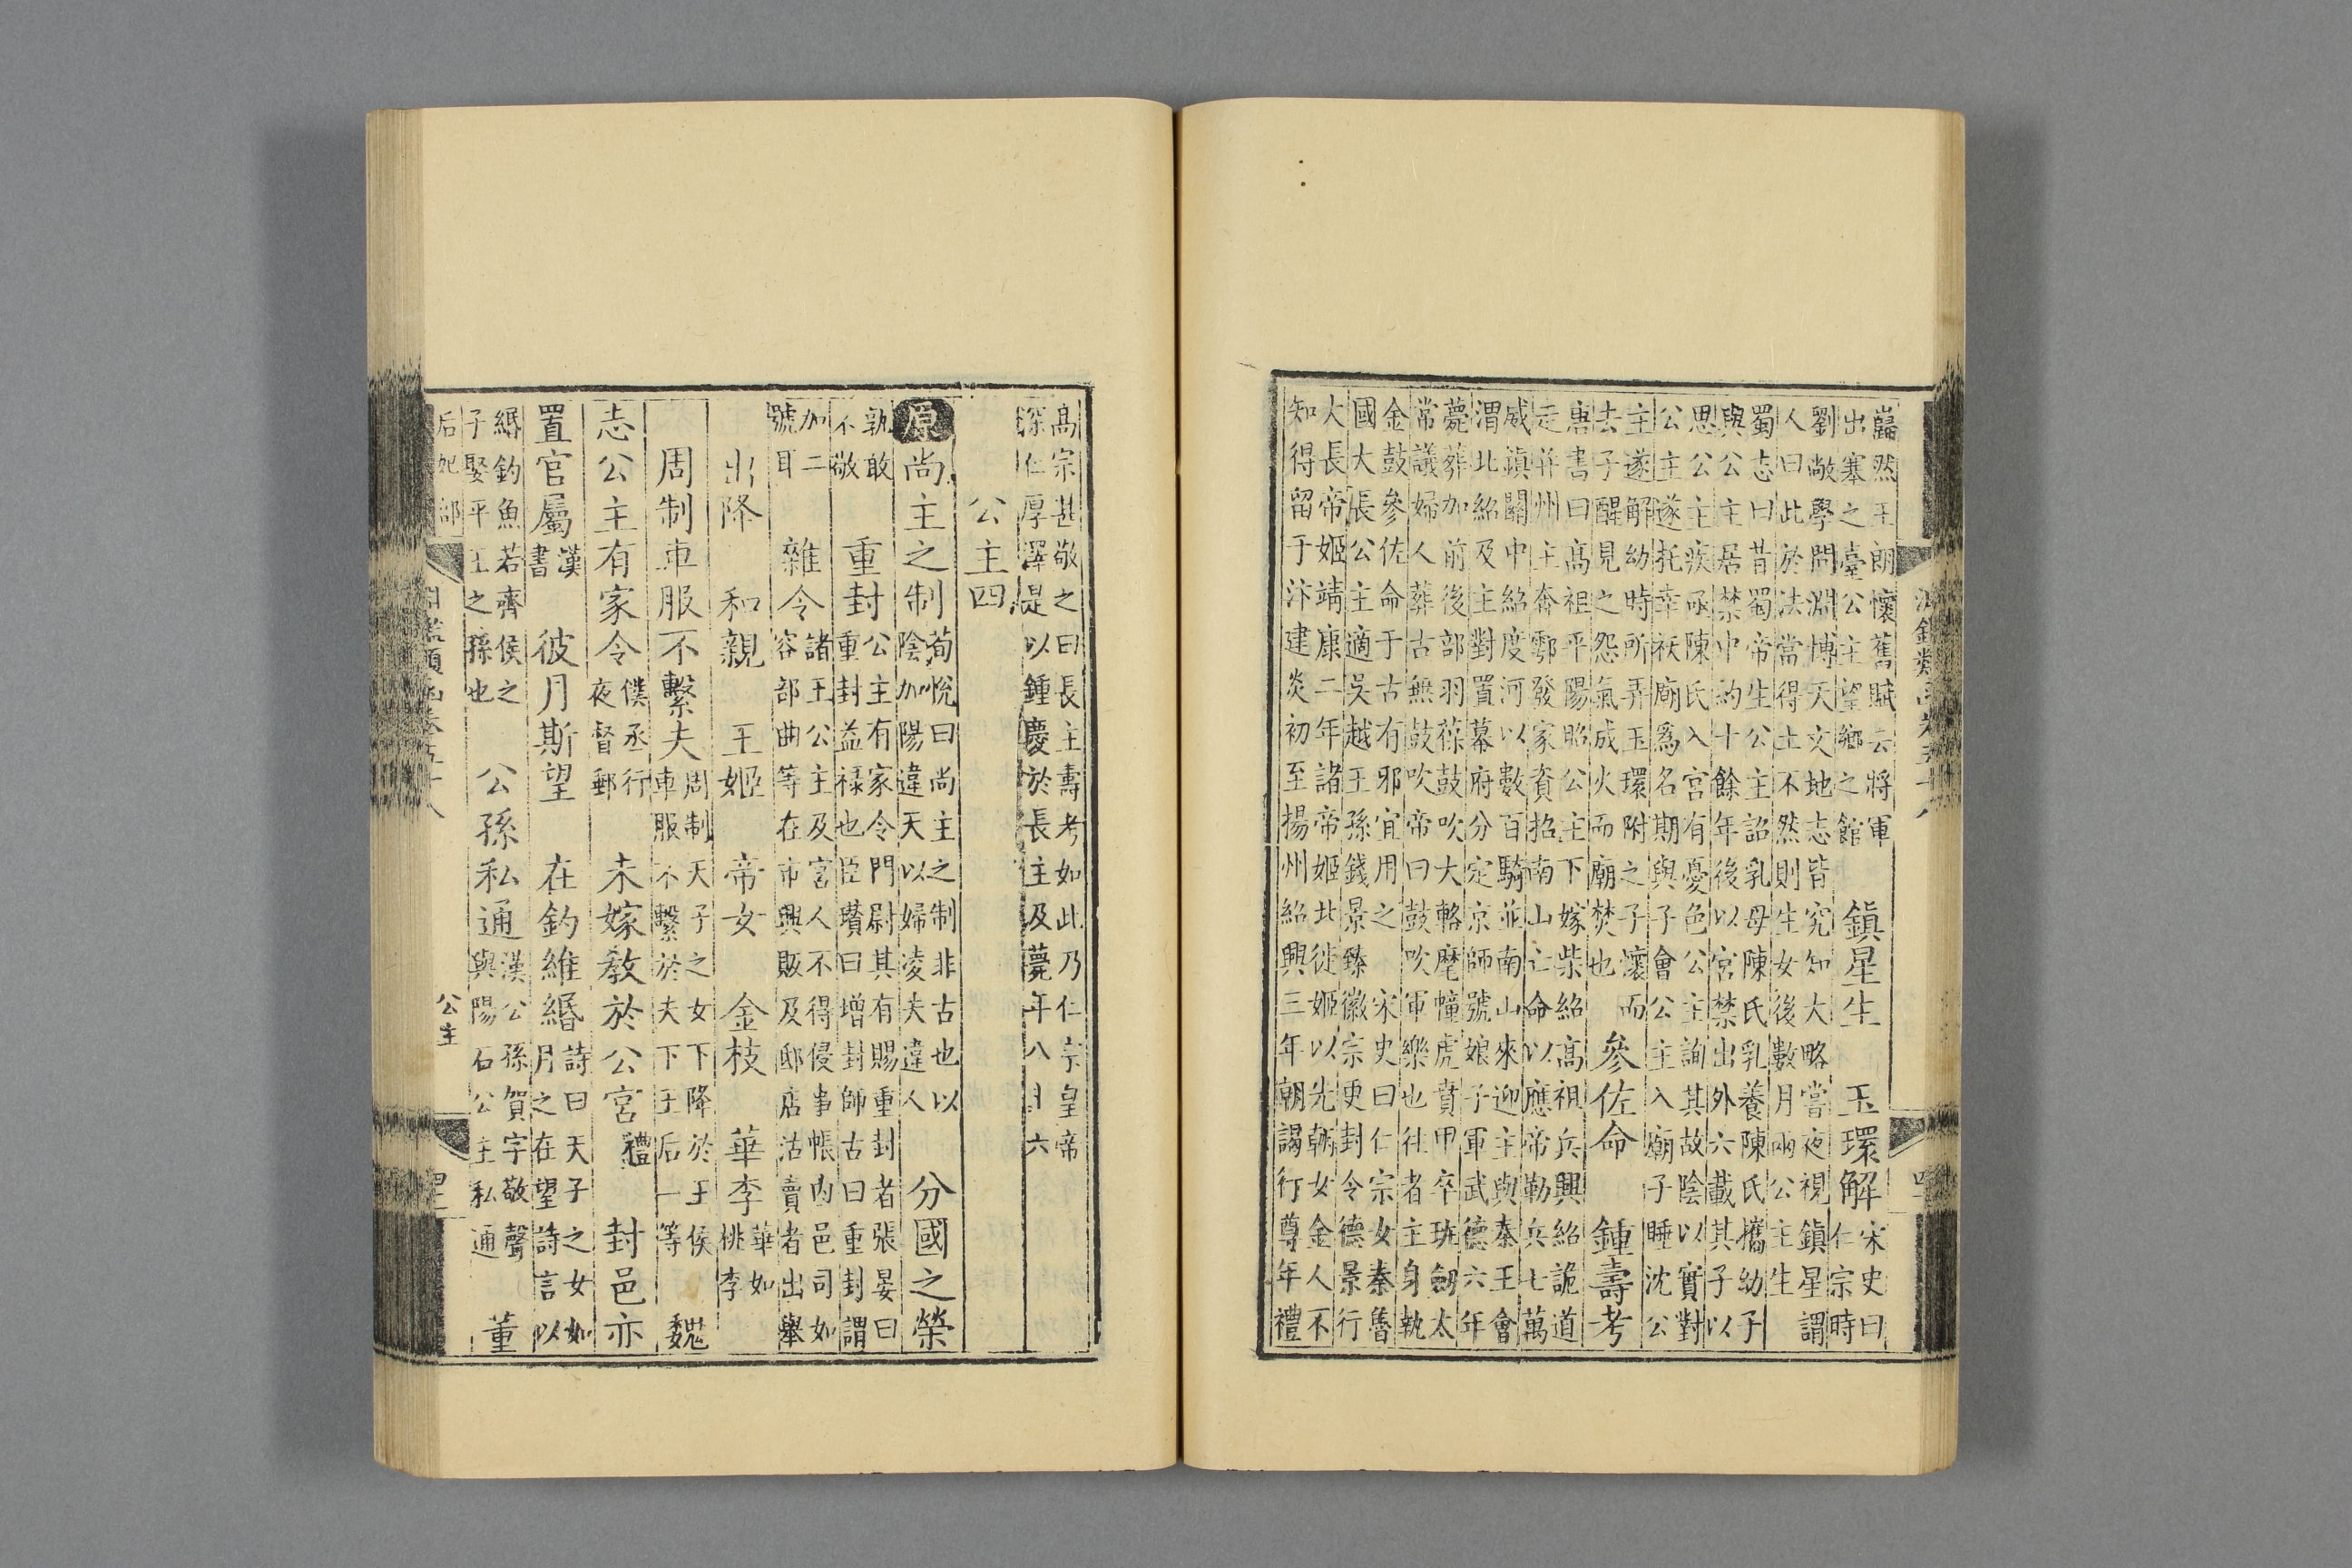 巋然王朗懷舊賦云將軍
出塞之臺公主望鄉之館
鎮星生　玉環解
宋史曰
仁宗時
劉敞學問淵博天文地志皆究知大略嘗夜視鎮星謂
人曰此於法當得土不然則生女後數月兩公主生
蜀志曰昔蜀帝生公主詔乳母陳氏乳養陳氏攜幼子
與公主居禁中約十餘年後以宮禁出外六載其子以
思公主疾亟陳氏入宮有憂色公主詢其故陰以實對
公主遂托幸祆廟爲名期與子會公主入廟子睡沈公
主遂解幼時所弄玉環附之子懷而
去子醒見之怨氣成火而廟焚也
參佐命　鍾壽考
唐書曰高祖平陽昭公主下嫁柴紹高祖兵興紹詭道
走并州主奔鄠發家資招南山亡命以應帝勒兵七萬
威鎮關中紹度河以數百騎並南山來迎主與秦王會
渭北紹及主對置幕府分定京師號娘子軍武德六年
薨葬加前後部羽葆鼓吹大輅麾幢虎賁甲卒班劒太
常議婦人葬古無鼓吹帝曰鼓吹軍樂也往者主身執
金鼓參佐命于古有邪宜用之　宋史曰仁宗女秦魯
國大長公主適吳越王孫錢景臻徽宗更封令德景行
大長帝姬靖康二年諸帝姬北徙姬以先朝女金人不
知得留于汴建炎初至揚州紹興三年朝謁行尊年禮
高宗甚敬之曰長主壽考如此乃仁宗皇帝
深仁厚澤是以鍾慶於長主及薨年八十六
公主四
原尚主之制
荀悅曰尚主之制非古也以
陰加陽違天以婦凌夫違人
分國之榮
孰敢
不敬
重封
公主有家令門尉其有賜重封者張晏曰
重封益祿也臣瓚曰增封師古曰重封謂
加二
號耳
雜令
諸王公主及宮人不得侵事帳內邑司如
容部曲等在市興販及邸店沽賣者出舉
出降　和親　王姬　帝女　金枝　華李
華如
桃李
周制車服不繫夫
周制天子之女下降於王侯
車服不繫於夫下王后一等
魏
志公主有家令
僕丞行
夜督郵
未嫁教於公宮
禮
封邑亦
置官屬
漢
書
彼月斯望　在釣維緡
詩曰天子之女如
月之在望詩言以
緡釣魚若齊侯之
子娶平王之孫也
公孫私通
漢公孫賀字敬聲
與陽石公主私通
董
后妃部
公主